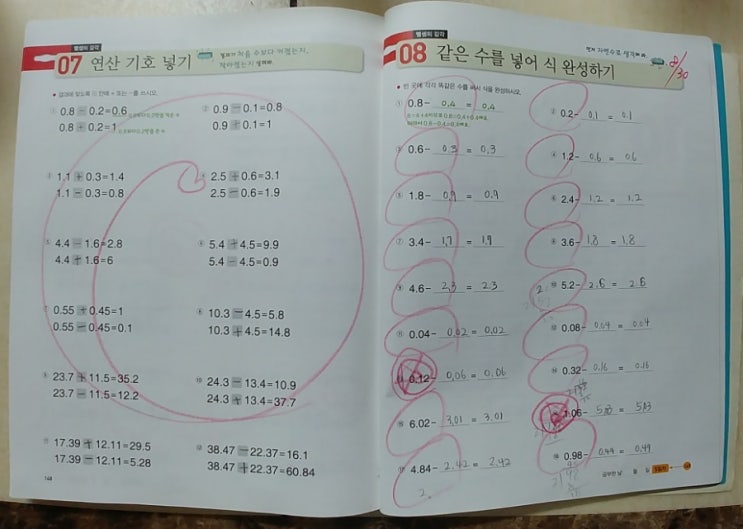 뺄셈의 감각
07 연산 기호 넣기
결과가 처음 수보다 커졌는지,
작아졌는지 살펴봐.
● 결과에 맞도록 □ 안에 + 또는 −를 쓰시오.
① 0.8 − 0.2=0.6
0.8 + 0.2=1
② 0.9 − 0.1=0.8
0.9 + 0.1=1
③ 1.1 + 0.3=1.4
1.1 − 0.3=0.8
④ 2.5 + 0.6=3.1
2.5 − 0.6=1.9
⑤ 4.4 − 1.6=2.8
4.4 + 1.6=6
⑥ 5.4 + 4.5=9.9
5.4 − 4.5=0.9
⑦ 0.55 + 0.45=1
0.55 − 0.45=0.1
⑧ 10.3 − 4.5=5.8
10.3 + 4.5=14.8
⑨ 23.7 + 11.5=35.2
23.7 − 11.5=12.2
⑩ 24.3 − 13.4=10.9
24.3 + 13.4=37.7
⑪ 17.39 + 12.11=29.5
17.39 − 12.11=5.28
⑫ 38.47 − 22.37=16.1
38.47 + 22.37=60.84
148
뺄셈의 감각
08 같은 수를 넣어 식 완성하기
먼저 자연수로 생각해 봐.
8/30
● 빈 곳에 각각 똑같은 수를 써서 식을 완성하시오.
① 0.8− 0.4 = 0.4
② 0.2− 0.1 = 0.1
③ 0.6− 0.3 = 0.3
④ 1.2− 0.6 = 0.6
⑤ 1.8− 0.9 = 0.9
⑥ 2.4− 1.2 = 1.2
⑦ 3.4− 1.7 = 1.7
⑧ 3.6− 1.8 = 1.8
⑨ 4.6− 2.3 = 2.3
⑩ 5.2− 2.6 = 2.6
⑪ 0.04− 0.02 = 0.02
⑫ 0.08− 0.04 = 0.04
⑬ 0.12− 0.06 = 0.06
⑭ 0.32− 0.16 = 0.16
⑮ 6.02− 3.01 = 3.01
⑯ 1.06−
⑰ 4.84− 2.42 = 2.42
⑱ 0.98− 0.49 = 0.49
공부한 날 월 일